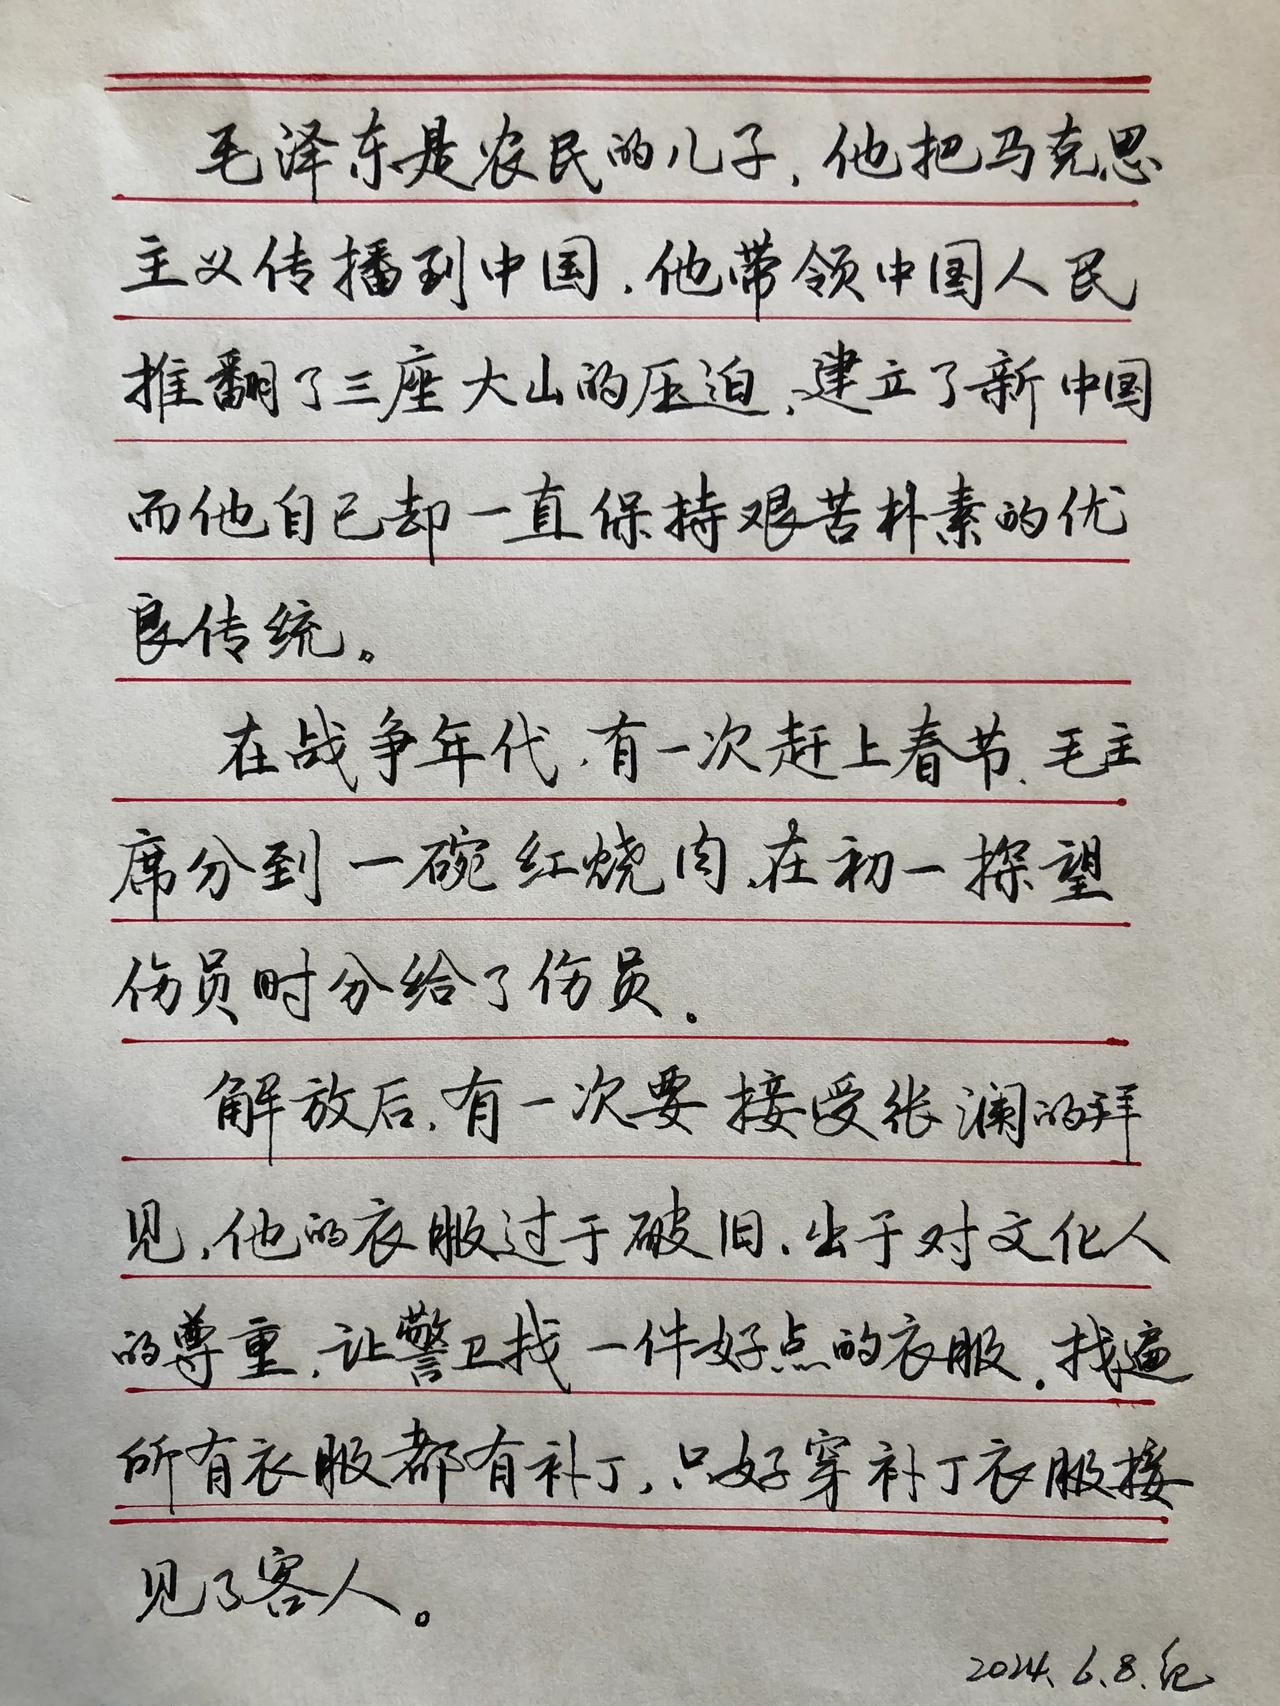 毛泽东是农民的儿子，他把马克思
主义传播到中国，他带领中国人民
推翻了三座大山的压迫，建立了新中国
而他自己却一直保持艰苦朴素的优
良传统。
在战争年代，有一次赶上春节，毛主
席分到一碗红烧肉，在初一探望
伤员时分给了伤员。
解放后，有一次要接受张澜的拜
见，他的衣服过于破旧，出于对文化人
的尊重，让警卫找一件好点的衣服。找遍
所有衣服都有补丁，只好穿补丁衣服接
见了客人。
2024.6.8.